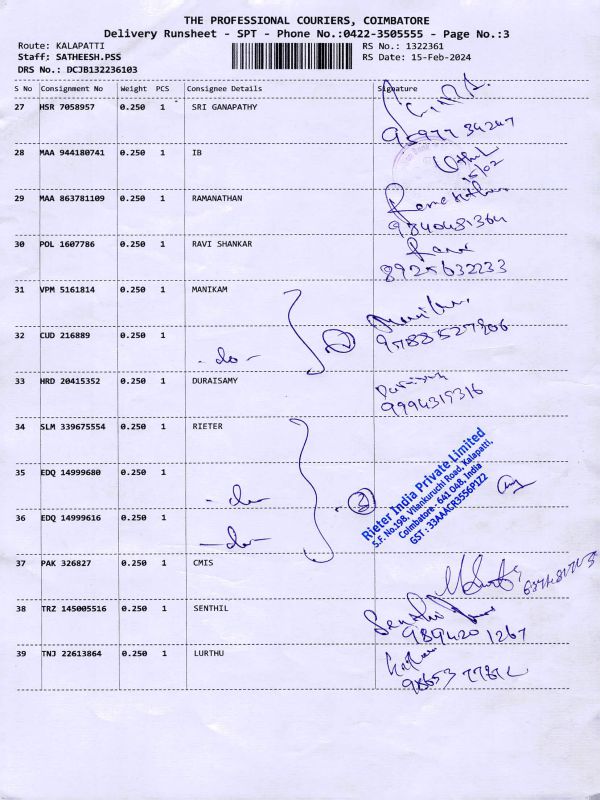 THE PROFESSIONAL COURIERS, COIMBATORE
Delivery Runsheet - SPT - Phone No.:0422-3505555 - Page No.:3
Route: KALAPATTI RS No.: 1322361
Staff: SATHEESH.PSS RS Date: 15-Feb-2024
DRS No.: DCJB132236103
S No Consignment No Weight PCS Consignee Details Signature
27 HSR 7058957 0.250 1 SRI GANAPATHY
28 MAA 944180741 0.250 1 IB
15/02
29 MAA 863781109 0.250 1 RAMANATHAN
9840481364
30 POL 1607786 0.250 1 RAVI SHANKAR
8925632233
31 VPM 5161814 0.250 1 MANIKAM
32 CUD 216889 0.250 1
- do - 2 9788527806
33 HRD 20415352 0.250 1 DURAISAMY
9994319316
34 SLM 339675554 0.250 1 RIETER
Rieter India Private Limited
S.F. No.198, Vilankuruchi Road, Kalapatti,
Coimbatore - 641 048, India
GST : 33AAACR3556P1Z2
35 EDQ 14999680 0.250 1
- do - 3
36 EDQ 14999616 0.250 1
- do -
37 PAK 326827 0.250 1 CMIS
38 TRZ 145005516 0.250 1 SENTHIL
Senthil
9894201267
39 TNJ 22613864 0.250 1 LURTHU